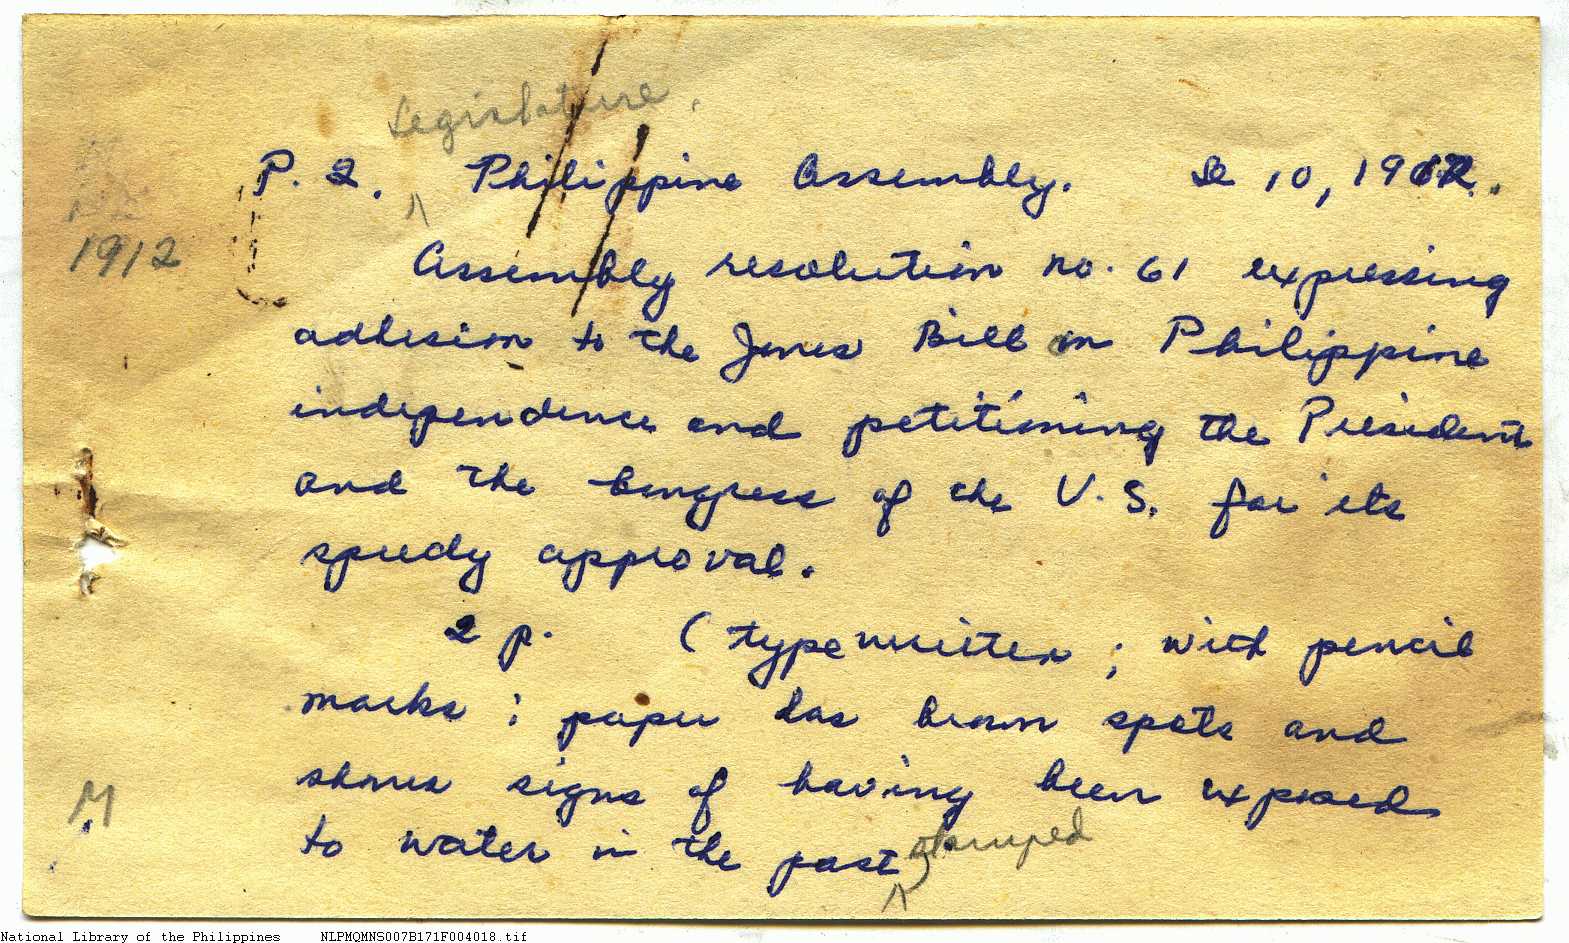 Legislature.
P. 2. Philippine Assembly. D 10, 1912.
1912
Assembly resolution no. 61 expressing
adhesion to the Jones Bill on Philippine
independence and petitioning the President
and the Congress of the U.S. for its
speedy approval.
2 p. (typewritten; with pencil
marks; paper has brown spots and
shows signs of having been exposed
to water in the past, stamped
M
National Library of the Philippines NLPMQMNS007B171F004018.tif